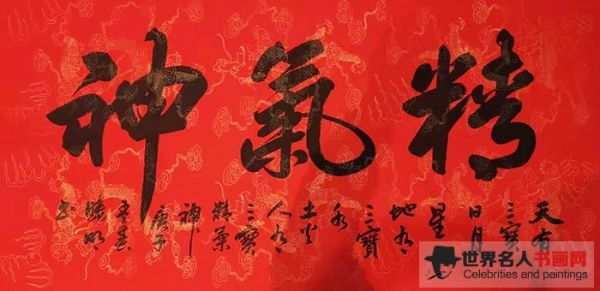 精氣神
天有
三寶
日月
星
地有
三寶
水
土火
人有
三寶
精氣
神
庚子
书
世界名人书画网
Celebrities and paintings